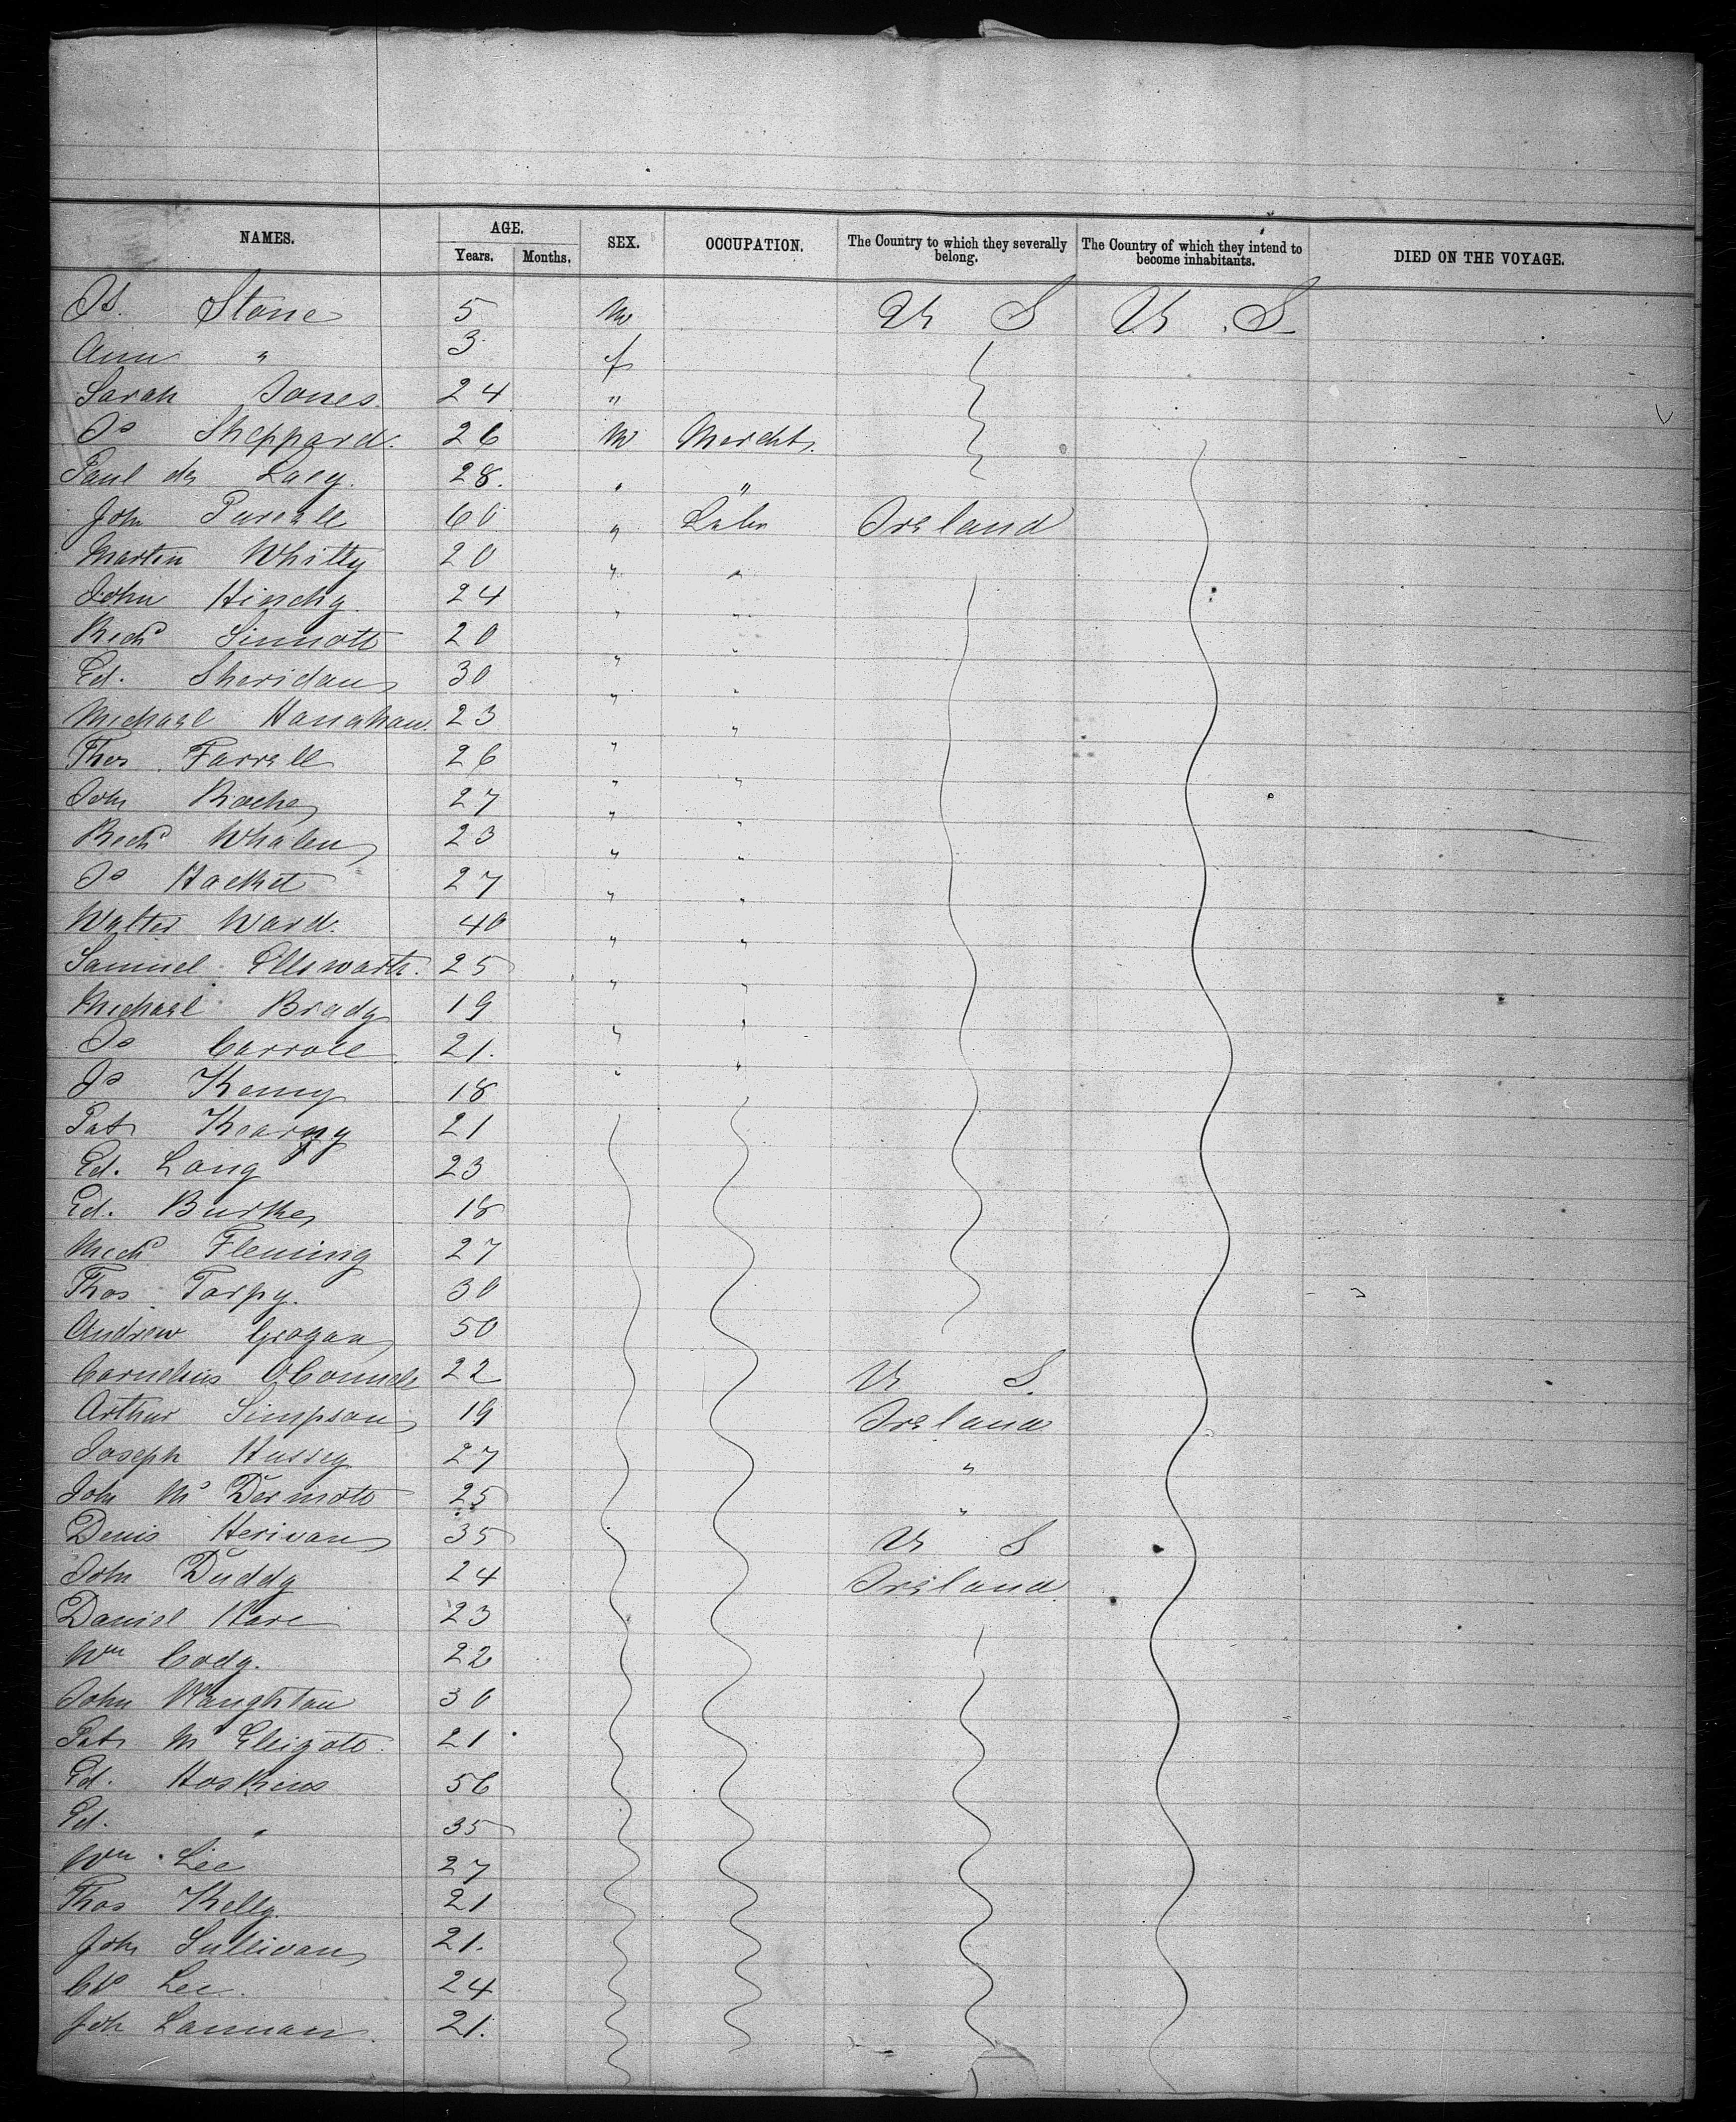 NAMES. AGE. Years. Months. SEX. OCCUPATION. The Country to which they severally belong. The Country of which they intend to become inhabitants. DIED ON THE VOYAGE.
Js. Stone 5 m U S U. S
Ann " 3 f
Sarah Jones 24 "
Js Sheppard. 26 m Mercht.
Paul de Lacy. 28. " "
John Purcell 60 " Labr Ireland
Martin Whitty 20 " "
John Hinchy 24 " "
Richd Sinnott 20 " "
Ed. Sheridan 30 " "
Michael Hanahan. 23 " "
Thos Farrell 26 " "
John Roche 27 " "
Richd Whalen 23 " "
Js Hacket 27 " "
Walter Ward. 40 " "
Samuel Ellsworth. 25 " "
Michael Brady 19 " "
Js Carroll 21. " "
Js Kenny 18
Pat Kearny 21
Ed. Long 23
Ed. Burke 18
Michl Fleming 27
Thos Tarpy. 30
Andrew Grogan 50
Cornelius OConnell 22 U S.
Arthur Simpson 19 Ireland
Joseph Hussey 27 "
John Mc Dermott 25 "
Denis Herivan 35 U S
John Duddy 24 Ireland
Daniel Hare 23
Wm Cody. 22
John Naughton 30
Pat Mc Elligott. 21
Ed. Hoskins 56
Ed. " 35
Wm Lee 27
Thos Kelly. 21
John Sullivan 21.
Lee. 24
Joh Lannan. 21.